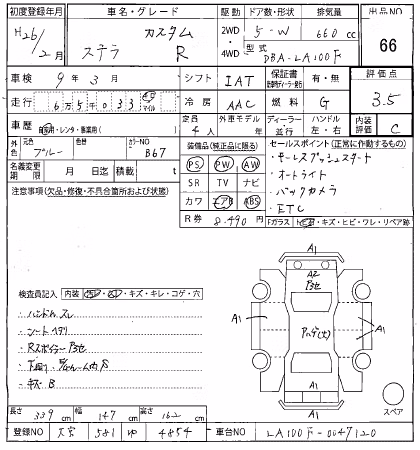 初度登録年月 車名・グレード 駆動 ドア数・形状 排気量 出品NO
H26/2月 ステラ カスタム R 2WD 4WD 5-W 660cc 66
型式 DBA-LA100F
車検 9年3月 シフト IAT 保証書 有・無 評価点
走行 65033 km マイル 冷房 AAC 燃料 G 3.5
車歴 自家用・レンタ・事業用( ) 定員 4人 外車モデル年 ディーラー 並行 ハンドル 左・右 内装評価 C
外色 元色 ブルー 色替 カラーNO B67 装備品(純正品に限る) セールスポイント(正常に作動するもの)
名義変更期限 月 日迄 積載 t PS PW AW ・キーレスプッシュスタート
注意事項(欠品・修復・不具合箇所および状態) SR TV ナビ ・オートライト
カワ エアB ABS ・バックカメラ
R券 8.490円 ・ETC
Fガラス トビ・キズ・ヒビ・ワレ・リペア跡
検査員記入 内装 キズ・キレ・コゲ・穴
・ハンドルスレ
・シートヘタリ
・キズ B
A1
A2
A1
A1
A1
スペア
長さ 339cm 幅 147cm 高さ 162cm
登録NO 大宮 581 ゆ 4854 車台NO LA100F-0047120